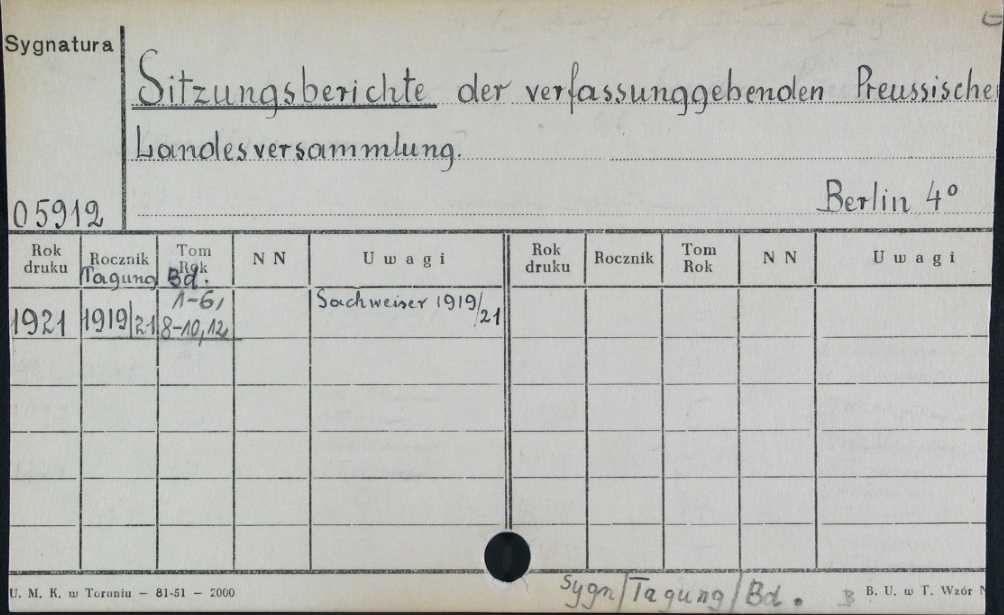 Sygnatura
Sitzungsberichte der verfassunggebenden Preussische
Landesversammlung.
Berlin 4º
05912
Rok druku Rocznik Tom Rok N N Uwagi Rok druku Rocznik Tom Rok N N Uwagi
Tagung Bd.
1921 1919/21 1-6, 8-10, 12, Sachweiser 1919/21
Sygn/Tagung/Bd.
U. M. K. w Toruniu — 81-51 — 2000
B B. U. w T. Wzór N